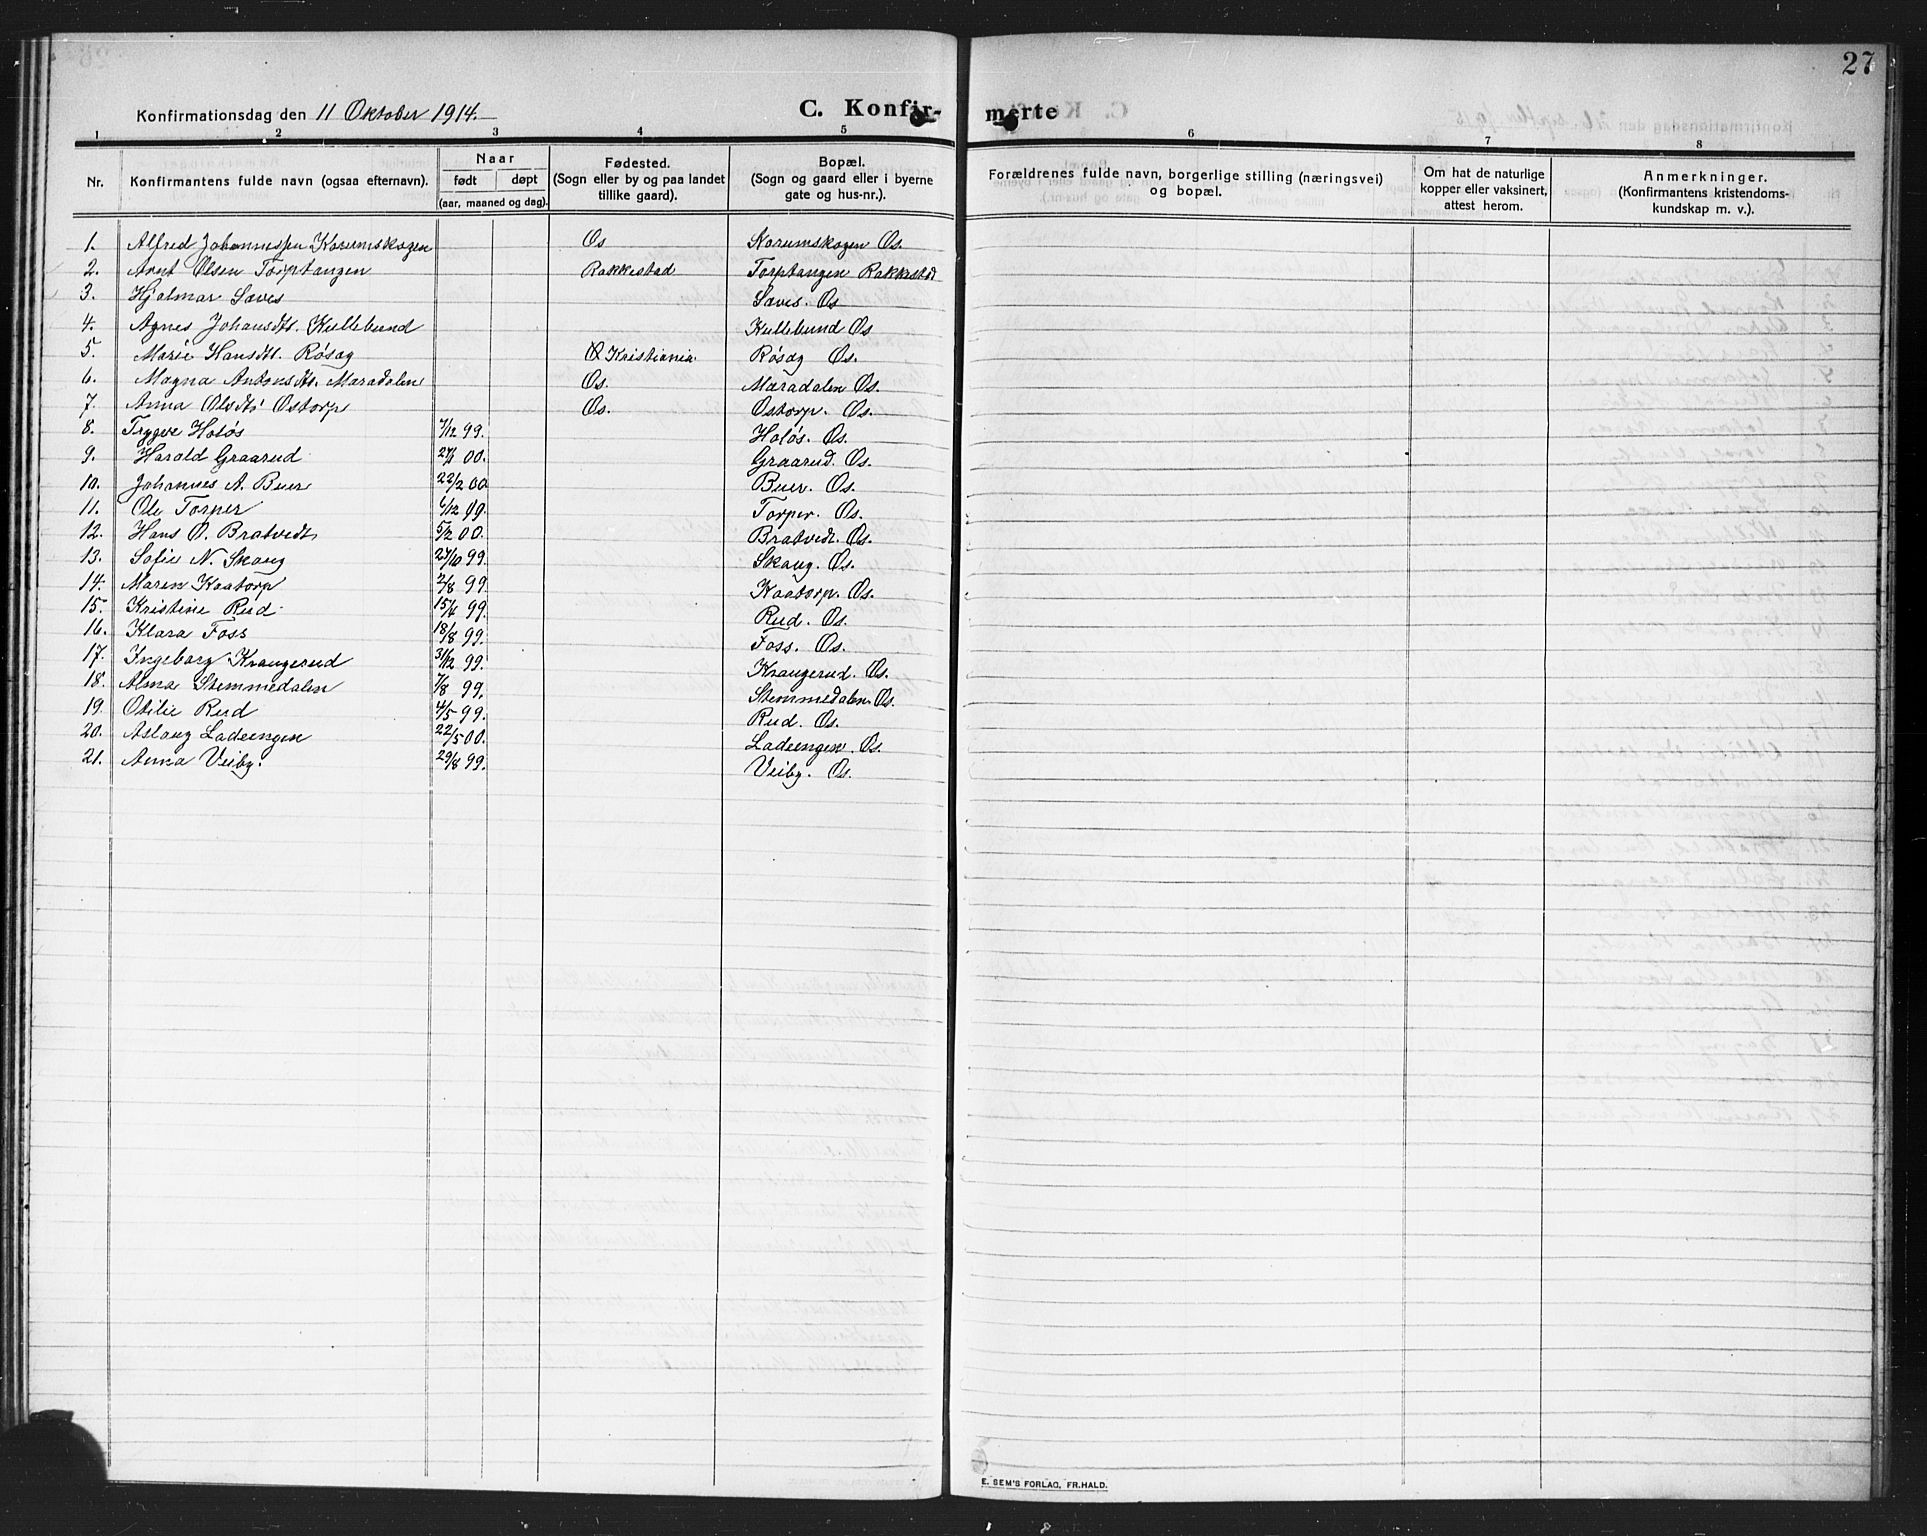 27
Konfirmationsdag den 11 Oktober 1914.
C. Konfir- merte
1 2 3 4 5 6 7 8
Nr. Konfirmantens fulde navn (ogsaa efternavn). Naar født døpt (aar, maaned og dag). Fødested. (Sogn eller by og paa landet tillike gaard). Bopæl. (Sogn og gaard eller i byerne gate og hus-nr.). Forældrenes fulde navn, borgerlige stilling (næringsvei) og bopæl. Om hat de naturlige kopper eller vaksinert, attest herom. Anmerkninger. (Konfirmantens kristendoms- kundskap m. v.).
1. Alfred Johannessen Korumskogen Os Korumskogen Os.
2. Arnt Olsen Torptangen Rakkestad Torptangen Rakkestad
3. Hjalmar Saves Saves. Os
4. Agnes Johansdt. Kullebund Kullebund Os.
5. Marie Hansdt. Røsæg Kristiania. Røsæg Os.
6. Magna Antonsdt. Maradalen Os. Maradalen Os.
7. Anna Olsdt. Østorp Os. Østorp. Os.
8. Trygve Holøs 7/12 99. Holøs. Os.
9. Harald Graarud 00. Graarud. Os.
10. Johannes A. Buer 22/2 00 Buer. Os.
11. Ole Torper 6/12 99. Torper. Os.
12. Hans O. Bratvedt 5/2 00. Bratvedt. Os.
13. Sofie N. Skaug 27/10 99. Skaug. Os.
14. Maren Kaatorp 2/8 99. Kaatorp. Os.
15. Kristine Rud. 99. Rud. Os.
16. Klara Foss 18/8 99. Foss. Os.
17. Ingeborg Krangerud 31/12 99. Krangerud. Os.
18. Alma Stemmedalen 7/8 99. Stemmedalen. Os.
19. Otilie Rud 4/5 99. Rud. Os.
20. Aslaug Ladeengen 22/5 00. Ladeengen. Os.
21. Anna Veiby. 29/8 99. Veiby. Os.
E. SEM'S FORLAG, FR.HALD.